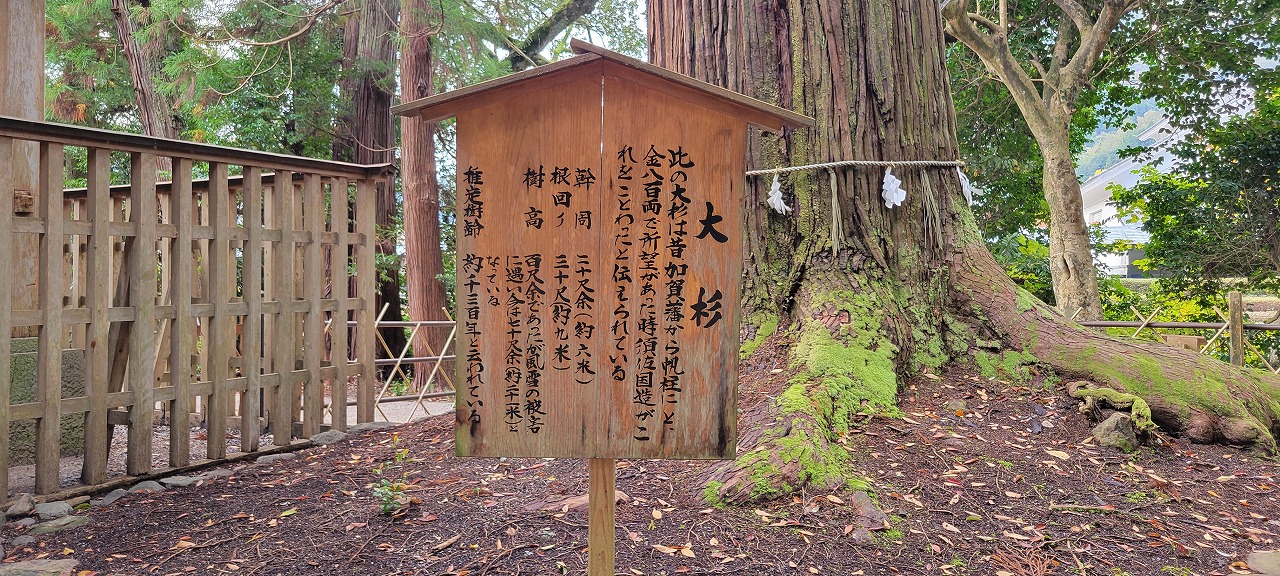 大杉
此の大杉は昔加賀藩から帆柱にと
金八百両で所望があった時須佐国造がこ
れをことわったと伝えられている
幹周 二十尺余(約六米)
根回り 三十尺(約九米)
樹高 百尺余であったが風雪の被害
に遇い今は七十尺余(約二十一米)と
なっている
推定樹齢 約千三百年と云われている